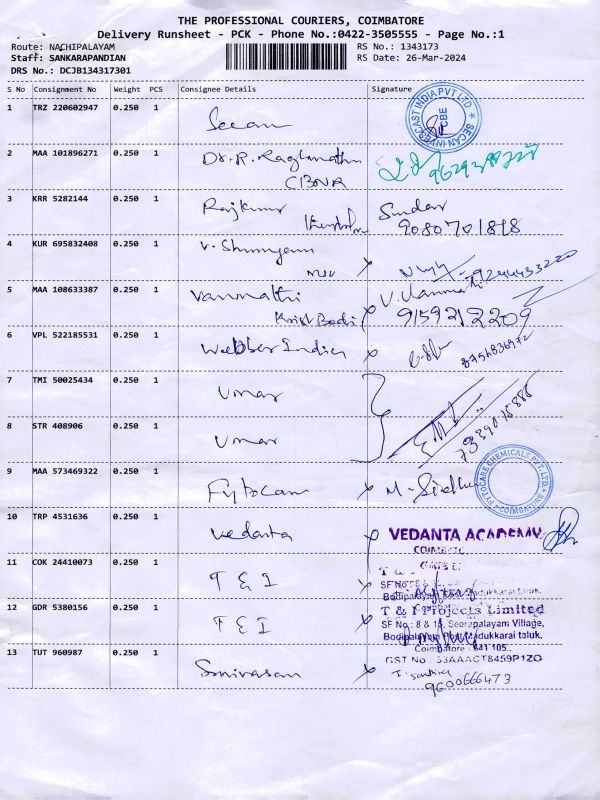 THE PROFESSIONAL COURIERS, COIMBATORE
Delivery Runsheet - PCK - Phone No.:0422-3505555 - Page No.:1
Route: NACHIPALAYAM
RS No.: 1343173
Staff: SANKARAPANDIAN
RS Date: 26-Mar-2024
DRS No.: DCJB134317301
S No Consignment No Weight PCS Consignee Details Signature
1 TRZ 220602947 0.250 1 Secan
SECAN INVESCAST INDIA PVT LTD CBE
2 MAA 101896271 0.250 1 Dr. R. Ragunathan
3 KRR 5282144 0.250 1 Rajkumar Sundar
9080701818
4 KUR 695832408 0.250 1 V. Shunmugam
9244433220
5 MAA 108633387 0.250 1 Vanmathi V. Vanmathi
9159212209
6 VPL 522185531 0.250 1 Webber India
8756836972
7 TMI 50025434 0.250 1 Umar
7339015886
8 STR 408906 0.250 1 Umar
9 MAA 573469322 0.250 1 Fytocare M. Sindhu
FYTOCARE CHEMICALS PVT. LTD. COIMBATORE
10 TRP 4531636 0.250 1 Vedanta VEDANTA ACADEMY
11 COK 24410073 0.250 1 T & I
12 GDR 5380156 0.250 1 T & I T & I Projects Limited
SF No : 8 & 15, Seerapalayam Village,
Bodipalayam Post, Madukkarai taluk,
Coimbatore - 641 105..
GST No : 33AAACT8459P1ZO
13 TUT 960987 0.250 1 Srinivasan
9600666473